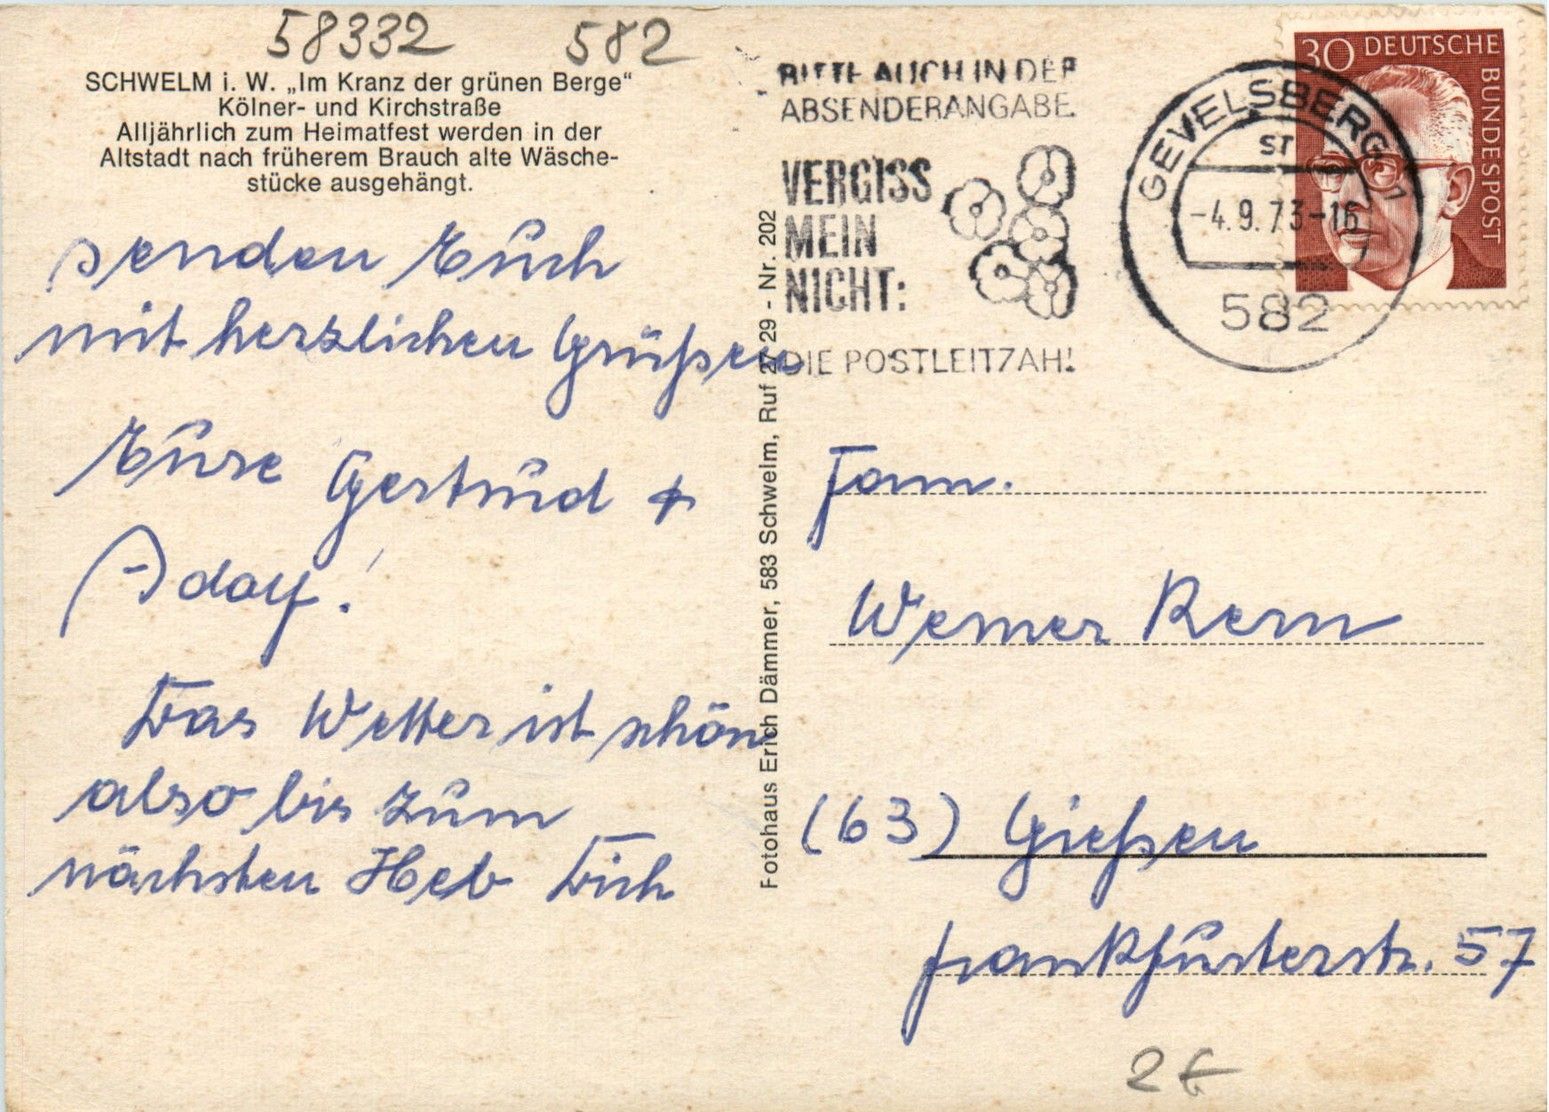 58332 582
SCHWELM i. W. „Im Kranz der grünen Berge"
Kölner- und Kirchstraße
Alljährlich zum Heimatfest werden in der
Altstadt nach früherem Brauch alte Wäsche-
stücke ausgehängt.
senden Euch
mit herzlichen Grüßen
Eure Gertrud +
Adolf!
Das Wetter ist schön
also bis zum
nächsten Heb Dich
Fotohaus Erich Dämmer, 583 Schwelm, Ruf 27 29 - Nr. 202
BITTE AUCH IN DER
ABSENDERANGABE
VERGISS
MEIN
NICHT:
DIE POSTLEITZAHL
GEVELSBERG 1
ST
-4.9.73-16
582
30 DEUTSCHE
BUNDESPOST
Fam.
Werner Kern
(63) Gießen
Frankfurterstr. 57
2€